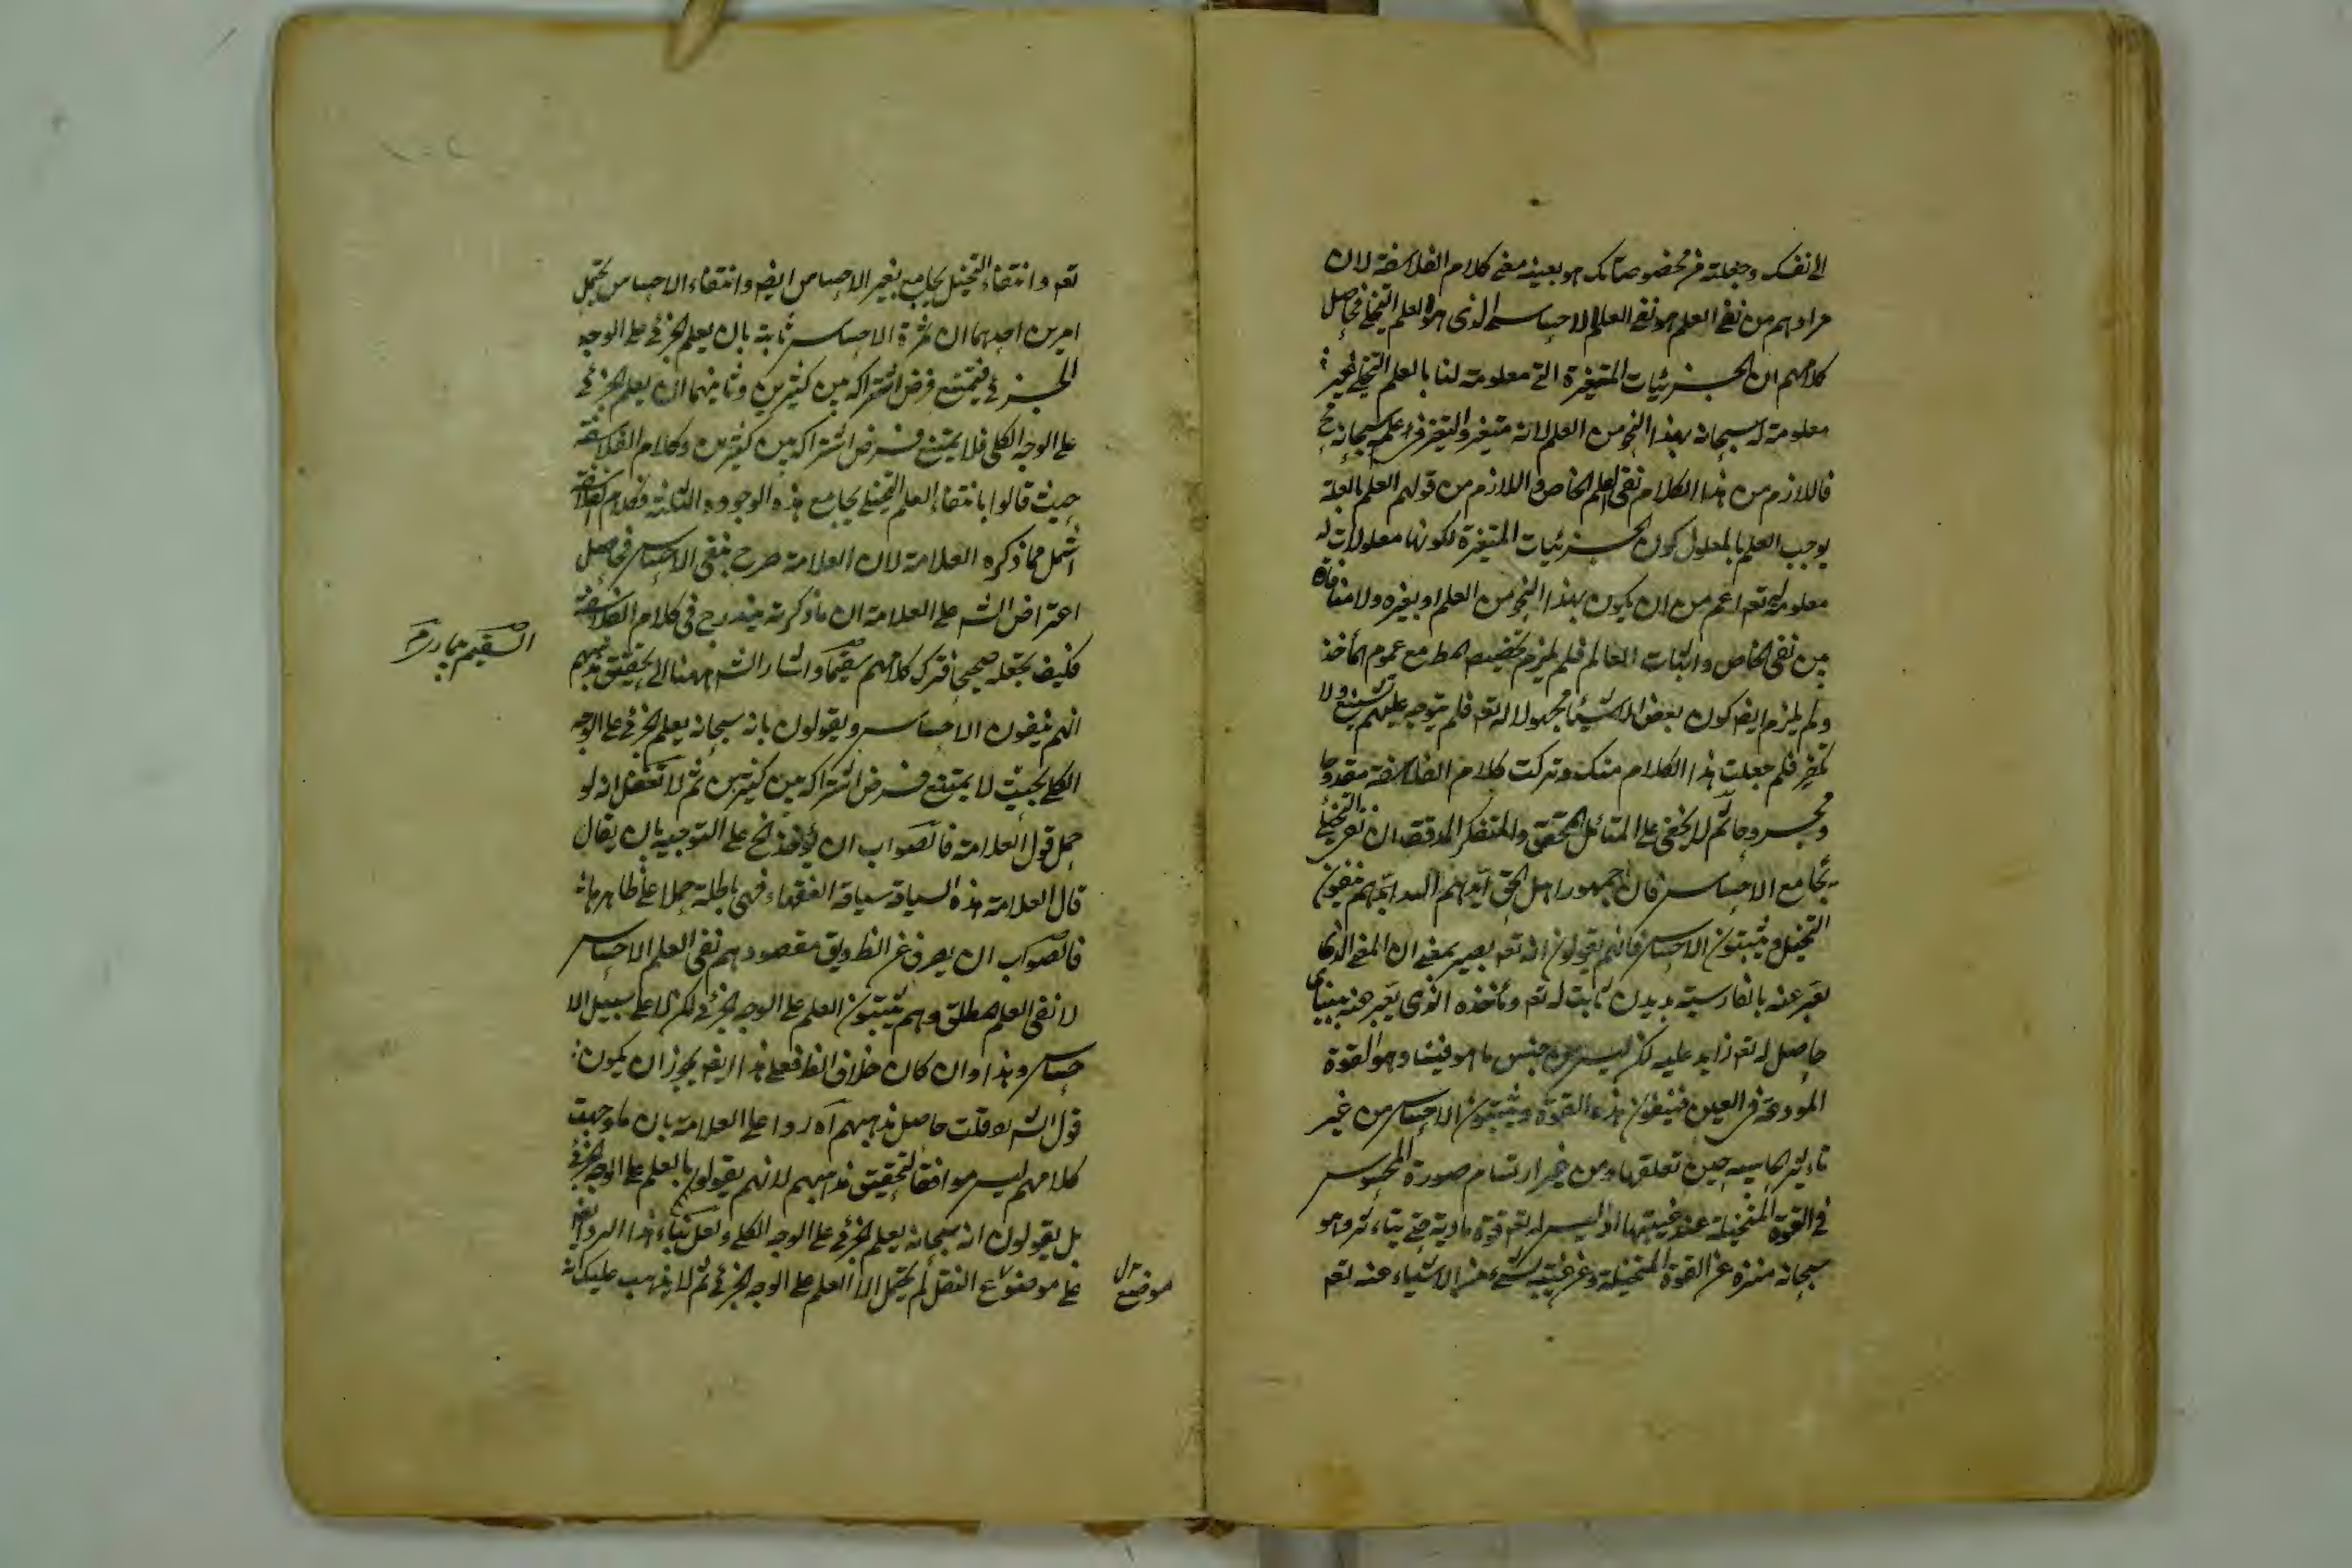 الى نفسك وجعلته من مخصوصاتك هو بعينه معنى كلام الفلاسفة لان
مرادهم من نفى العلم هو نفى العلم الاحساسى الذى هو العلم التخيلى فحاصل
كلامهم ان الجزئيات المتغيرة التى معلومة لنا بالعلم التخيلى غير
معلومة له سبحانه بهذا النحو من العلم لانه متغير والتغير فى علمه سبحانه مح
فاللازم من هذا الكلام نفى العلم الخاص واللازم من قولهم العلم بالعلة
يوجب العلم بالمعلول كون الجزئيات المتغيرة لكونها معلولات له
معلومة له تعه اعم من ان يكون بهذا النحو من العلم او بغيره ولا منافاة
بين نفى الخاص واثبات العام فلم يلزم تخصيصهم مع عموم المأخذ
ولم يلزم ايضه كون بعض الاشياء مجهولا له تعه فلم يتوجه عليهم تشنيع ولا
تكفير فلم جعلت هذا الكلام منك وتركت كلام الفلاسفة مقدوحا
ومجروحا ثم لا يخفى على المتأمل المحقق والمتفكر المدقق ان نفى التخيل
يجامع الاحساس فان جمهور اهل الحق ايدهم الله ينفون
التخيل ويثبتون الاحساس فانهم يقولون انه تعه بصير بمعنى ان المعنى الذى
يعبر عنه بالفارسية بديدن ثابت له تعه ومأخذه الذى يعبر عنه ببينايى
حاصل له تعه زايد عليه لكن ليس من جنس ما هو فينا وهو القوة
المودعة فى العين فينفون هذه القوة ويثبتون الاحساس من غير
تأثير الحاسة حين تعلقها ومن غير ارتسام صورة المحسوس
فى القوة المتخيلة عند غيبتها اذ ليس له تعه قوة مادية حتى يتأثر وهو
سبحانه منزه عن القوة المتخيلة وعن غيبة شىء من الاشياء عنه تعه
تعه وانتفاء التخيل يجامع بغير الاحساس ايضه وانتفاء الاحساس يحتمل
امرين احدهما ان ثمرة الاحساس ثابتة بان يعلم الجزئى على الوجه
الجزئى فيمتنع فرض اشتراكه بين كثيرين وثانيهما ان يعلم الجزئى
على الوجه الكلى فلا يمتنع فرض اشتراكه بين كثيرين وكلام الفلاسفة
حيث قالوا بانتفاء العلم التخيلى يجامع هذه الوجوه الثلثة فكلام الفلاسفة
اشمل مما ذكره العلامة لان العلامة صرح بنفى الاحساس فحاصل
اعتراض الشه على العلامة ان ما ذكرته مندرج فى كلام الفلاسفة
فكيف تجعله صحيحا فترك كلامهم سقيما واشار الشه ههنا الى تحقيق مذهبهم
انهم ينفون الاحساس ويقولون بانه سبحانه يعلم الجزئى على الوجه
الكلى بحيث لا يمتنع فرض اشتراكه بين كثيرين ثم لا تغفل انه لو
حمل قول العلامة فالصواب ان يؤخذ الخ على التوجيه بان يقال
قال العلامة هذه السياقة سياقة الفقهاء فهى باطلة حملا على ظاهرها
فالصواب ان يصرف عن الظه ويق مقصودهم نفى العلم الاحساس
لا نفى العلم المطلق وهم يثبتون العلم على الوجه الجزئى لكن لا على سبيل الا
حساس وهذا وان كان خلاف الظه فعلى هذا ايضه يجوز ان يكون
قول الشه لو قلت حاصل مذهبهم آه ردا على العلامة بان ما وجهت
كلامهم ليس موافقا لتحقيق مذهبهم لانهم يقولون بالعلم على الوجه الجزئى
بل يقولون انه سبحانه يعلم الجزئى على الوجه الكلى ولعل بناء هذا الرد ايضا
على موضوع النقل لم يحتمل الا العلم على الوجه الجزئى ثم لا يذهب عليك انه
موضع